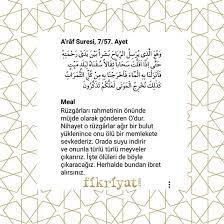 A'râf Suresi, 7/57. Ayet
وَهُوَ الَّذٖي يُرْسِلُ الرِّيَاحَ بُشْراً بَيْنَ يَدَيْ رَحْمَتِهٖؕ
حَتّٰٓى اِذَٓا اَقَلَّتْ سَحَاباً ثِقَالاً سُقْنَاهُ لِبَلَدٍ مَيِّتٍ
فَاَنْزَلْنَا بِهِ الْمَٓاءَ فَاَخْرَجْنَا بِهٖ مِنْ كُلِّ الثَّمَرَاتِؕ
كَذٰلِكَ نُخْرِجُ الْمَوْتٰى لَعَلَّكُمْ تَذَكَّرُونَ
Meal
Rüzgârları rahmetinin önünde
müjde olarak gönderen O'dur.
Nihayet o rüzgârlar ağır bir bulut
yüklenince onu ölü bir memlekete
sevkederiz. Orada suyu indirir
ve onunla türlü türlü meyveler
çıkarırız. İşte ölüleri de böyle
çıkaracağız. Herhalde bundan ibret
alırsınız.
fikriyat